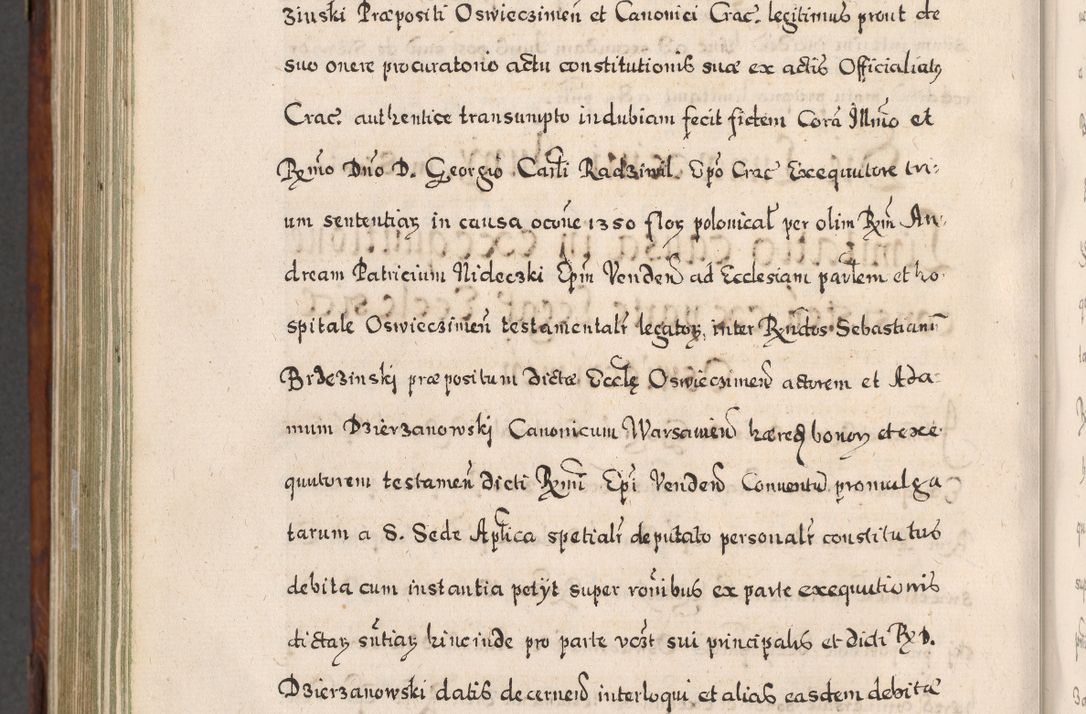 ziński Præpositi Oswieczimeń et Canonici Crac. legitimus prout de
suo onere procuratorio actu constitutionis suæ ex actis Officialiatꝫ
Crac. authentice transumpto indubiam fecit fidem Corā Illm̄o et
Rm̄o Dn̄o D. Georgio Carłi Radziwił Epō Crac Exequutore tri⸗
um sententiaꝝ in causa ocōne 1350 floꝝ polonicał per olim Rm̄ An⸗
dream Patricium Nideczki Epm̄ Venden̄ ad Ecclesiam parlem et ho⸗
spitale Oswieczimen̄ testamentalr̄ legatoꝝ, inter Rn̄dos Sebastianū
Brdezinskj præpositum dictæ Eccłę Oswieczimen̄ actorem et Ada⸗
mum Dzierzanowskj Canonicum Warsawien̄ hæred bonoꝝ et exe⸗
quutorem testamen̄ dicti Rmī Epī Venden̄ Conventū promulga
tarum a S. Sede Aplica spetialr̄ deputato personalr̄ constitutus
debita cum instantia petÿt super ron̄ibus ex parte exequutionis
dictaꝝ sn̄tiaꝝ hinc inde pro parte vest̄ sui principalis et dicti R D.
Dzierzanowski datis decernend interloqui et alias easdem debitæ